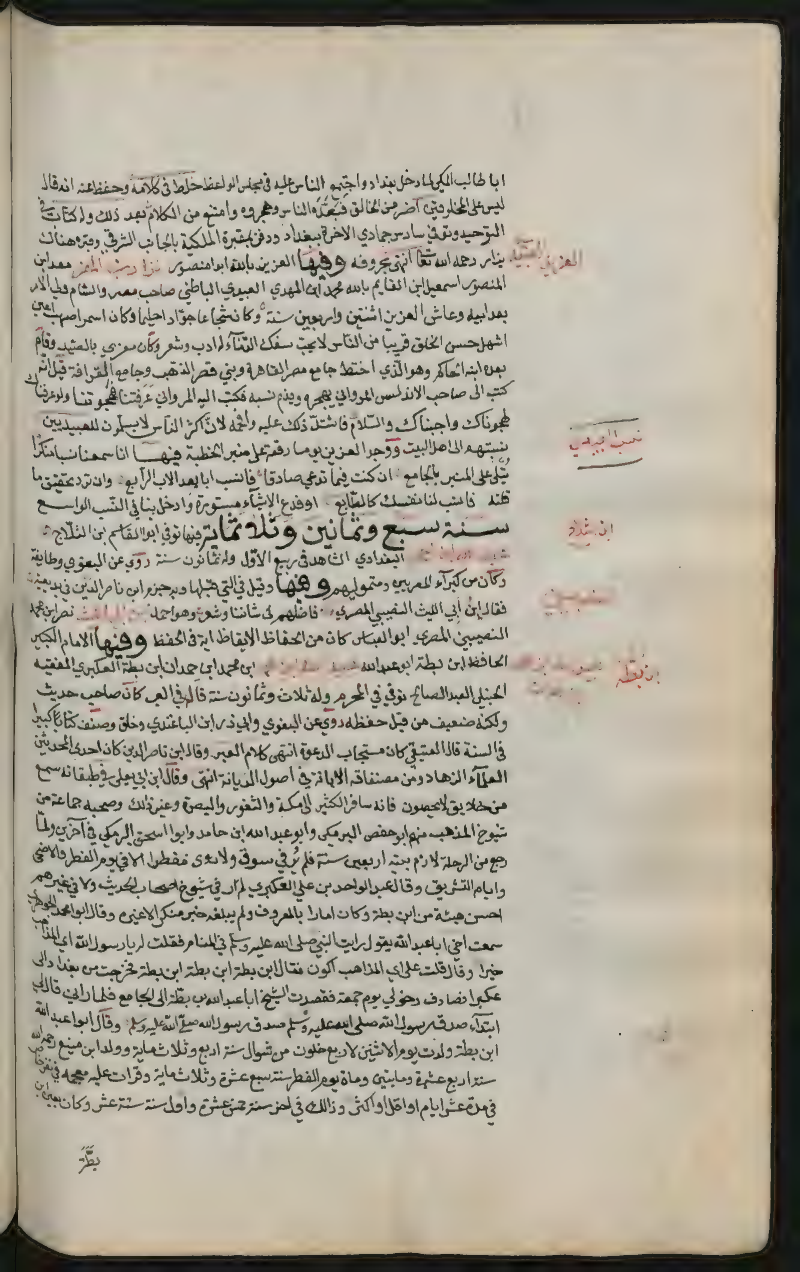 ابا طالب المكي لما دخل بغداد واجتمع الناس عليه في مجلس الوعظ خلط في كلامه وحفظ عنه انه قال
ليس على المخلوقين اضر من الخالق فبدعه الناس وهجروه وامتنع من الكلام بعد ذلك وله كتاب في
التوحيد وتوفي سادس جمادي الاخرة ببغداد ودفن بمقبرة المالكية بالجانب الشرقي وقبره هناك
يزار رحمه الله تعا انتهى بحروفه وفيها العزيز بالله ابو منصور نزار بن المعز معد ابن
المنصور اسمعيل ابن القايم بالله محمد ابن المهدي العبيدي الباطني صاحب مصر والشام ولي الامر
بعد ابيه وعاش العزيز اثنتين واربعين سنة وكان شجاعا جوادا حليما وكان اسمر اصهب اعين
اشهل حسن الخلق قريبا من الناس لا يحب سفك الدماء له ادب وشعر وكان مغزي بالصيد وقام
بعده ابنه الحاكم وهو الذي اختط جامع مصر القاهرة وبنى قصر الذهب وجامع القرافة قيل انه
كتب الى صاحب الاندلس المرواني يهجره ويذم نسبه فكتب اليه المرواني عرفتنا فهجوتنا ولو عرفناك
هجوناك واجبناك والسلام فاشتد ذلك عليه وافحمه لان اكثر الناس لا يسلمون للعبيديين
نسبتهم الى اهل البيت ووجد العزيز يوما رقعة على منبر الخطبة فيها انا سمعنا نسبا منكرا
يتلى على المنبر بالجامع ان كنت فيما تدعي صادقا فانسب ابا بعد الاب الرابع وان ترد تحقيق ما
قلته فانسب لنا نفسك كالطايع او فدع الاشياء مستورة وادخل بنا في النسب الواسع
سنة سبع وثمانين وثلاثماية فيها توفي ابو القاسم ابن الثلاج
البغدادي الشاهد في ربيع الاول وله ثمانون سنة روى عن البغوي وطايفة
وفيها وقيل في التي قبلها وبه جزم ابن ناصر الدين في بديعيته
فقال ابن أبي الليث النصيبي المصري فاضلهم في شاننا وشعر وهو احمد نصر ابن محمد
النصيبي المصري ابو العباس كان من الحفاظ الايقاظ اية في الحفظ وفيها الامام الكبير
الحافظ ابن بطة ابو عبد الله ابن محمد ابن حمدان ابن بطة العكبري الفقيه
الحنبلي العبد الصالح توفي في المحرم وله ثلاث وثمانون سنة قال في العبر كان صاحب حديث
ولكنه ضعيف من قبل حفظه روى عن البغوي وابي ذر ابن الباغندي وخلق وصنف كتابا كبيرا
في السنة قال العتيقي كان مستجاب الدعوة انتهى كلام العبر وقال ابن ناصر الدين كان احد المحدثين
العلماء الزهاد ومن مصنفاته الابانة في اصول الديانة انتهى وقال ابن ابي يعلى في طبقاته سمع
من خلايق لا يحصون فانه سافر الكثير الى مكة والثغور والبصرة وغير ذلك وصحبه جماعة من
شيوخ المذهب منهم ابو حفص البرمكي وابو عبد الله ابن حامد وابو اسحق البرمكي في آخرين ولما
رجع من الرحلة لازم بيته اربعين سنة فلم ير في سوق ولا روى مفطرا الا في يوم الفطر والاضحى
وايام التشريق وقال عبد الواحد بن علي العكبري لم ار في شيوخ اصحاب الحديث ولا في غيرهم
احسن هيئة من ابن بطة وكان امارا بالمعروف ولم يبلغه خبر منكر الا غيره وقال ابو محمد الجوهري
سمعت اخي ابا عبد الله يقول رايت النبي صلى الله عليه وسلم في المنام فقلت له يا رسول الله اي المذاهب
خير او قال قلت على اي المذاهب اكون فقال ابن بطة ابن بطة ابن بطة فخرجت من بغداد الى
عكبرا فصادف دخولي يوم جمعة فقصدت الشيخ ابا عبد الله بن بطة الى الجامع فلما راني قال لي
ابتداء صدق رسول الله صلى الله عليه وسلم صدق رسول الله صلى الله عليه وسلم وقال ابو عبد الله
ابن بطة ولدت يوم الاثنين لاربع خلون من شوال سنة اربع وثلاثماية وولد ابن منيع رحمه الله
سنة اربع عشرة ومايتين ومات يوم الفطر سنة سبع عشرة وثلاثماية وقرات عليه معجمه في نفر
في مدة عشر ايام او اقل او اكثر وذلك في اخر سنة خمس عشرة واول سنة ستة عشر وكان
بطة
العزيز العبيدي
نسب العبيديين
النصيبي
ابن بطة